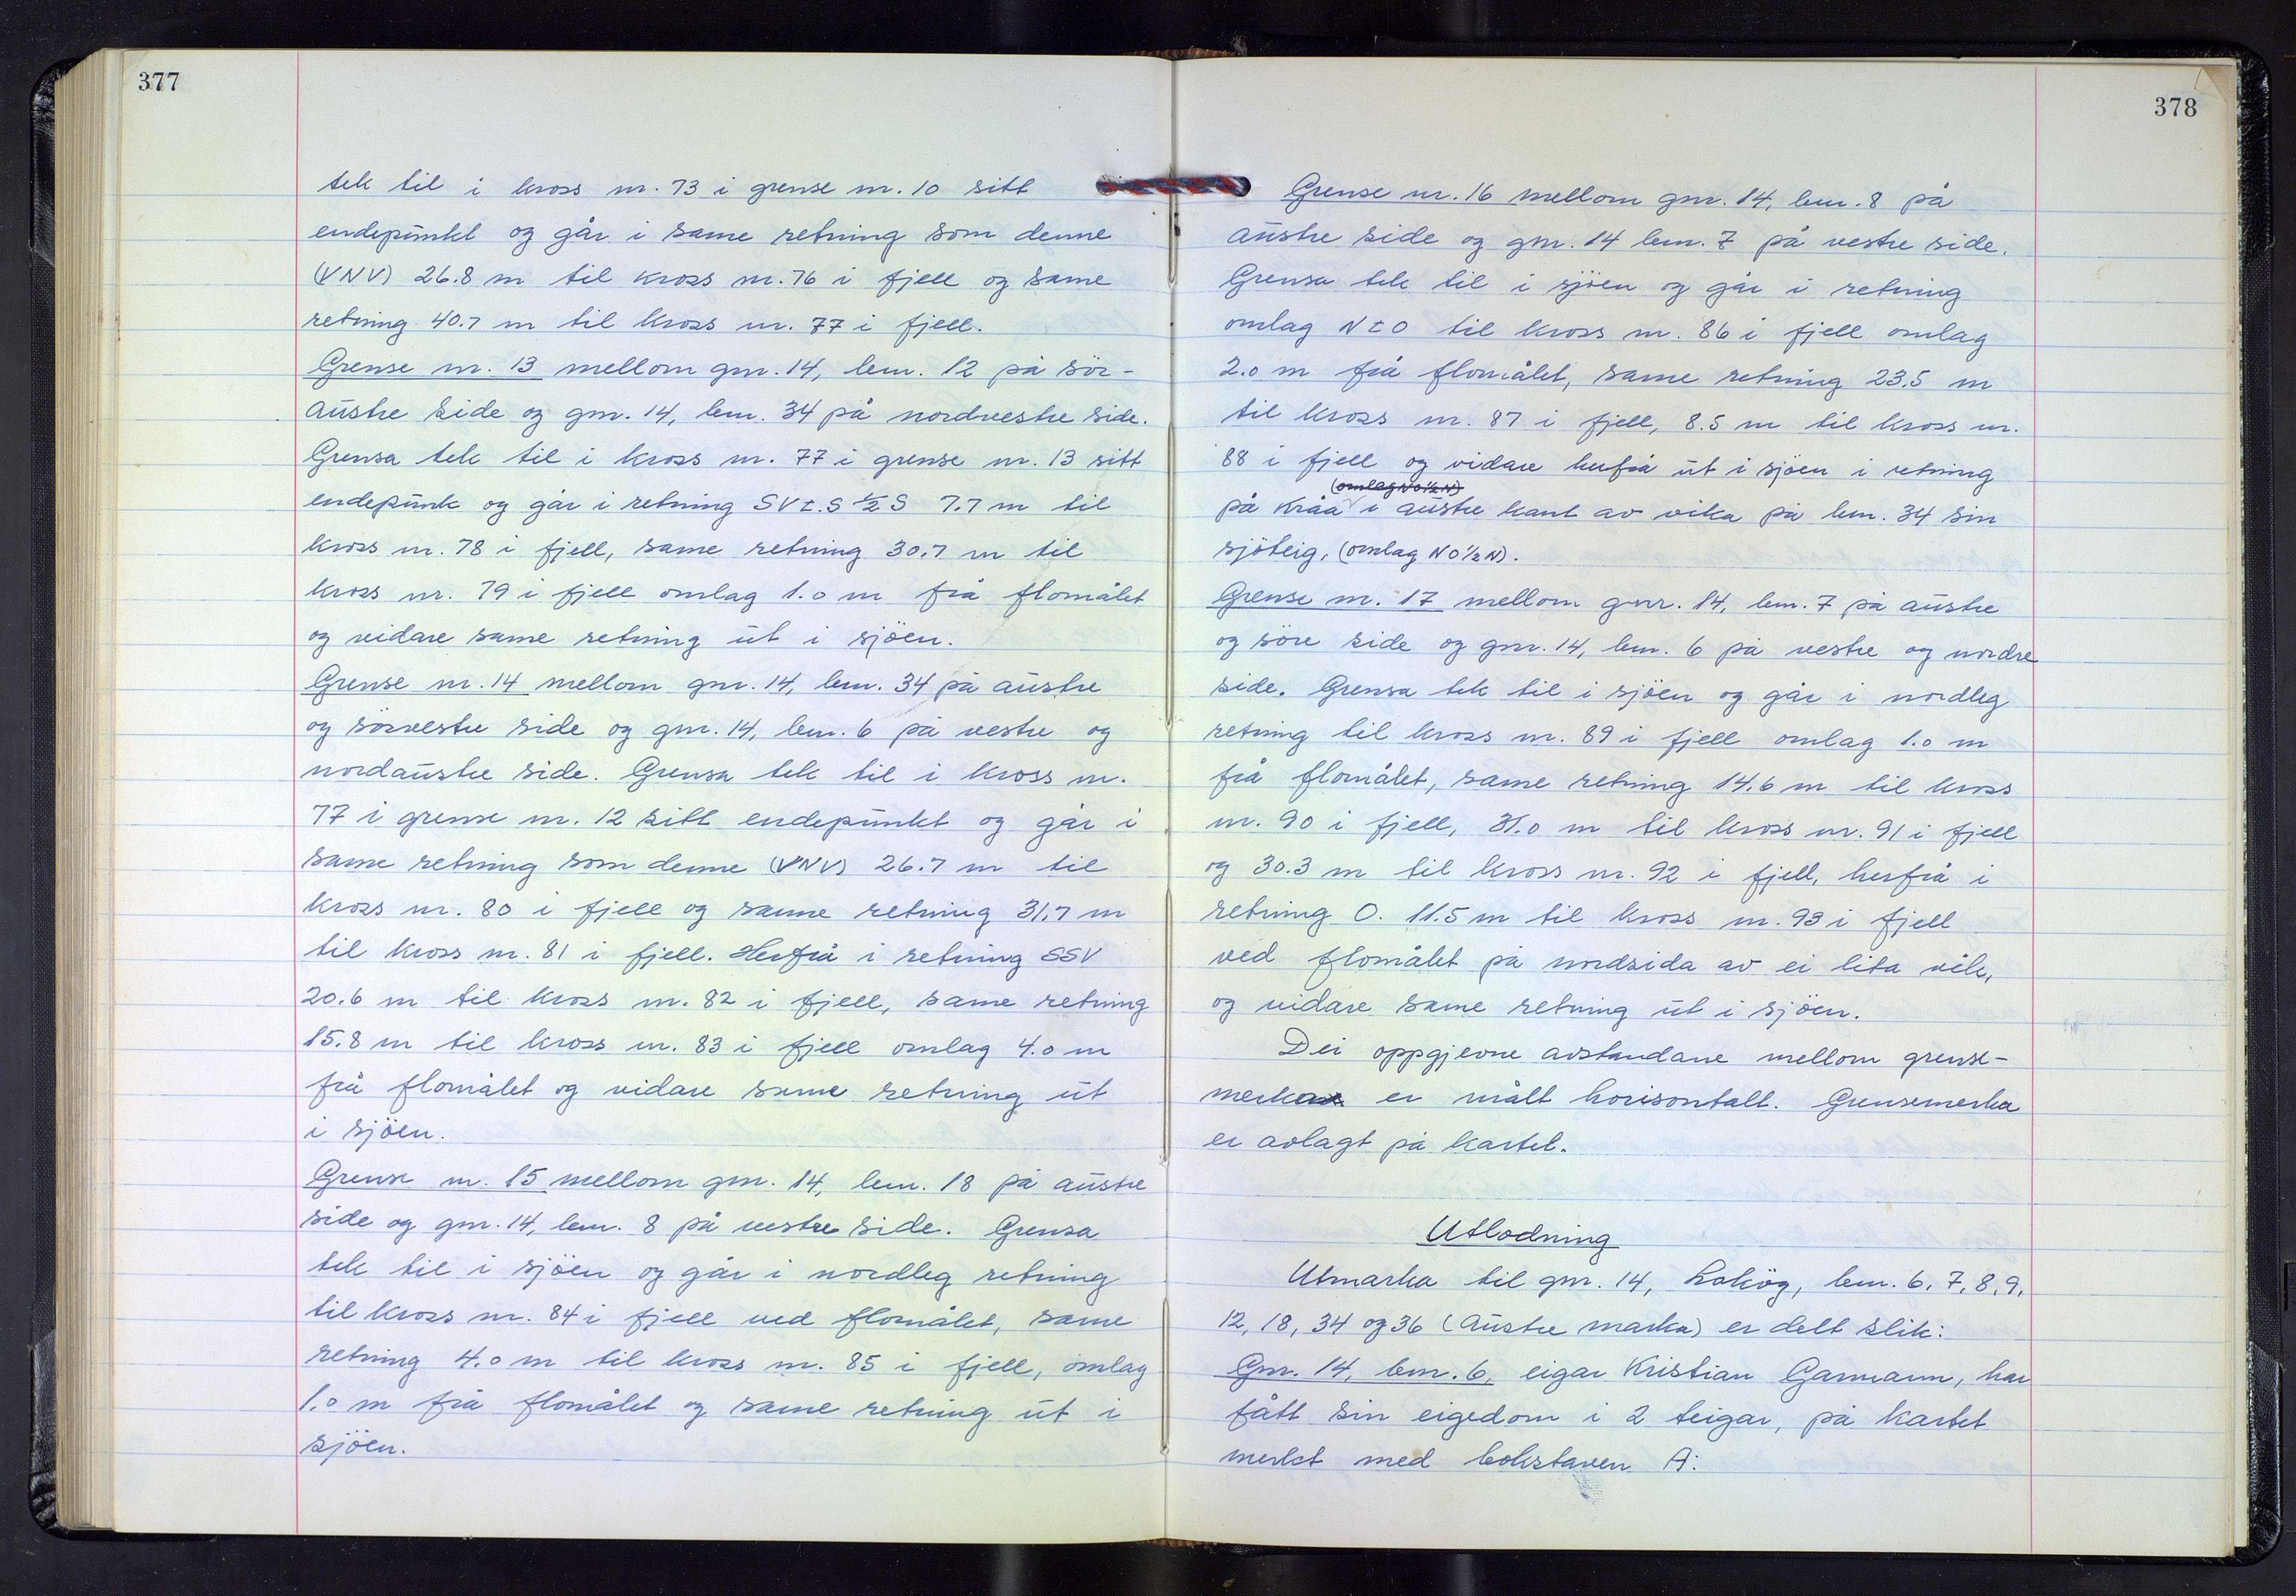 377
tek til i kross nr. 73 i grense nr. 10 sitt
endepunkt og går i same retning som denne
(VNV) 26.8 m til kross nr. 76 i fjell og same
retning 40.7 m til kross nr. 77 i fjell.
Grense nr. 13 mellom gnr. 14, bnr. 12 på sör-
austre side og gnr. 14, bnr. 34 på nordvestre side.
Grensa tek til i kross nr. 77 i grense nr. 13 sitt
endepunk og går i retning SVt.S ½ S 7.7 m til
kross nr. 78 i fjell, same retning 30.7 m til
kross nr. 79 i fjell omlag 1.0 m frå flomålet
og vidare same retning ut i sjöen.
Grense nr. 14 mellom gnr. 14, bnr. 34 på austre
og sörvestre side og gnr. 14, bnr. 6 på vestre og
nordaustre side. Grensa tek til i kross nr.
77 i grense nr. 12 sitt endepunkt og går i
same retning som denne (VNV) 26.7 m til
kross nr. 80 i fjell og same retning 31.7 m
til kross nr. 81 i fjell. Herfrå i retning SSV
20.6 m til kross nr. 82 i fjell, same retning
15.8 m til kross nr. 83 i fjell omlag 4.0 m
frå flomålet og vidare same retning ut
i sjöen.
Grense nr. 15 mellom gnr. 14, bnr. 18 på austre
side og gnr. 14, bnr. 8 på vestre side. Grensa
tek til i sjöen og går i nordleg retning
til kross nr. 84 i fjell ved flomålet, same
retning 4.0 m til kross nr. 85 i fjell, omlag
1.0 m frå flomålet og same retning ut i
sjöen.
378
Grense nr. 16 mellom gnr. 14, bnr. 8 på
austre side og gnr. 14 bnr. 7 på vestre side.
Grensa tek til i sjöen og går i retning
omlag NtO til kross nr. 86 i fjell omlag
2.0 m frå flomålet, same retning 23.5 m
til kross nr. 87 i fjell, 8.5 m til kross nr.
88 i fjell og vidare herfrå ut i sjöen i retning
(omlag NO½N)
på kråa i austre kant av vika på bnr. 34 sin
sjöteig, (omlag NO½N).
Grense nr. 17 mellom gnr. 14, bnr. 7 på austre
og söre side og gnr. 14, bnr. 6 på vestre og nordre
side. Grensa tek til i sjöen og går i nordleg
retning til kross nr. 89 i fjell omlag 1.0 m
frå flomålet, same retning 14.6 m til kross
nr. 90 i fjell, 31.0 m til kross nr. 91 i fjell
og 30.3 m til kross nr. 92 i fjell, herfrå i
retning O. 11.5 m til kross nr. 93 i fjell
ved flomålet på nordsida av ei lita vik,
og vidare same retning ut i sjöen.
Dei oppgjevne avstandane mellom grense-
merka er målt horisontalt. Grensemerka
er avlagt på kartet.
Utlodning
Utmarka til gnr. 14, Loköy, bnr. 6, 7, 8, 9,
12, 18, 34 og 36 (Austre marka) er delt slik:
Gnr. 14, bnr. 6, eigar Kristian Garmann, har
fått sin eigedom i 2 teigar, på kartet
merkt med bokstaven A: